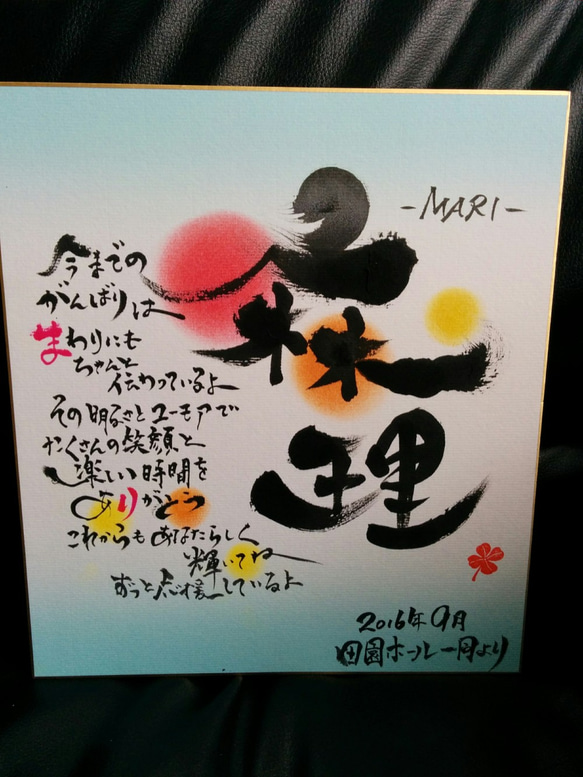 -MARI-
麻理
今までの
がんばりは
まわりにも
ちゃんと
伝わっているよ
その明るさとユーモアで
たくさんの笑顔と
楽しい時間を
ありがとう
これからもあなたらしく
輝いてね
ずっと応援しているよ
2016年9月
田園ホール一同より